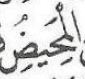 الْمَحِيضِ